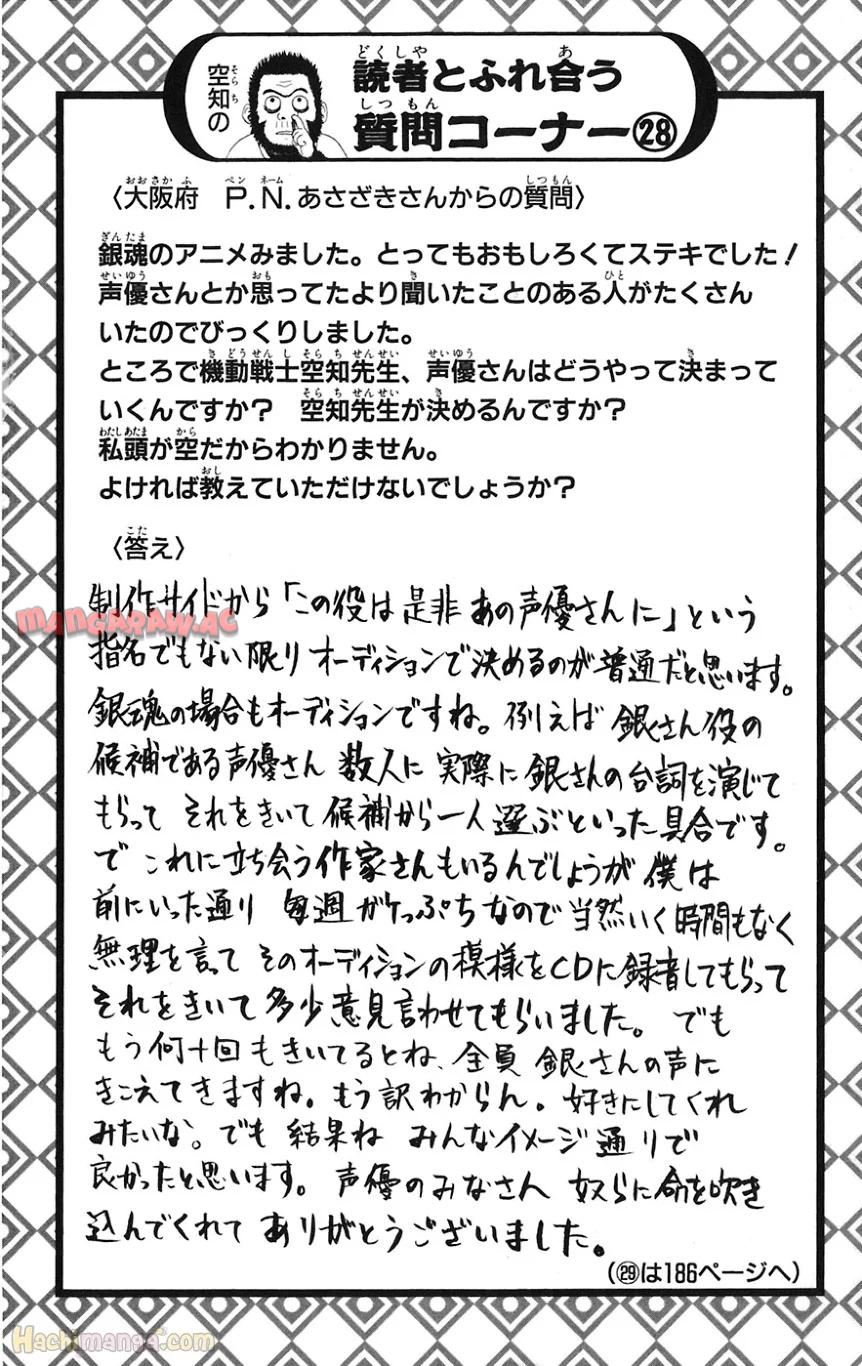 空知の
読者とふれ合う
質問コーナー㉘
〈大阪府 P.N.あさざきさんからの質問〉
銀魂のアニメみました。とってもおもしろくてステキでした！
声優さんとか思ってたより聞いたことのある人がたくさん
いたのでびっくりしました。
ところで機動戦士空知先生、声優さんはどうやって決まって
いくんですか？ 空知先生が決めるんですか？
私頭が空だからわかりません。
よければ教えていただけないでしょうか？
〈答え〉
制作サイドから「この役は是非あの声優さんに」という
指名でもない限りオーディションで決めるのが普通だと思います。
銀魂の場合もオーディションですね。例えば銀さん役の
候補である声優さん数人に実際に銀さんの台詞を演じて
もらって それをきいて候補から一人選ぶといった具合です。
で これに立ち会う作家さんもいるんでしょうが僕は
前にいった通り 毎週がけっぷちなので当然いく時間もなく
無理を言って そのオーディションの模様をCDに録音してもらって
それをきいて多少意見言わせてもらいました。でも
もう何十回もきいてるとね、全員銀さんの声に
きこえてきますね。もう訳わからん。好きにしてくれ
みたいな。でも 結果ね みんなイメージ通りで
良かったと思います。声優のみなさん 奴らに命を吹き
込んでくれて ありがとうございました。
(㉙は186ページへ)
MANGARAW.AC
Hachimanga.com